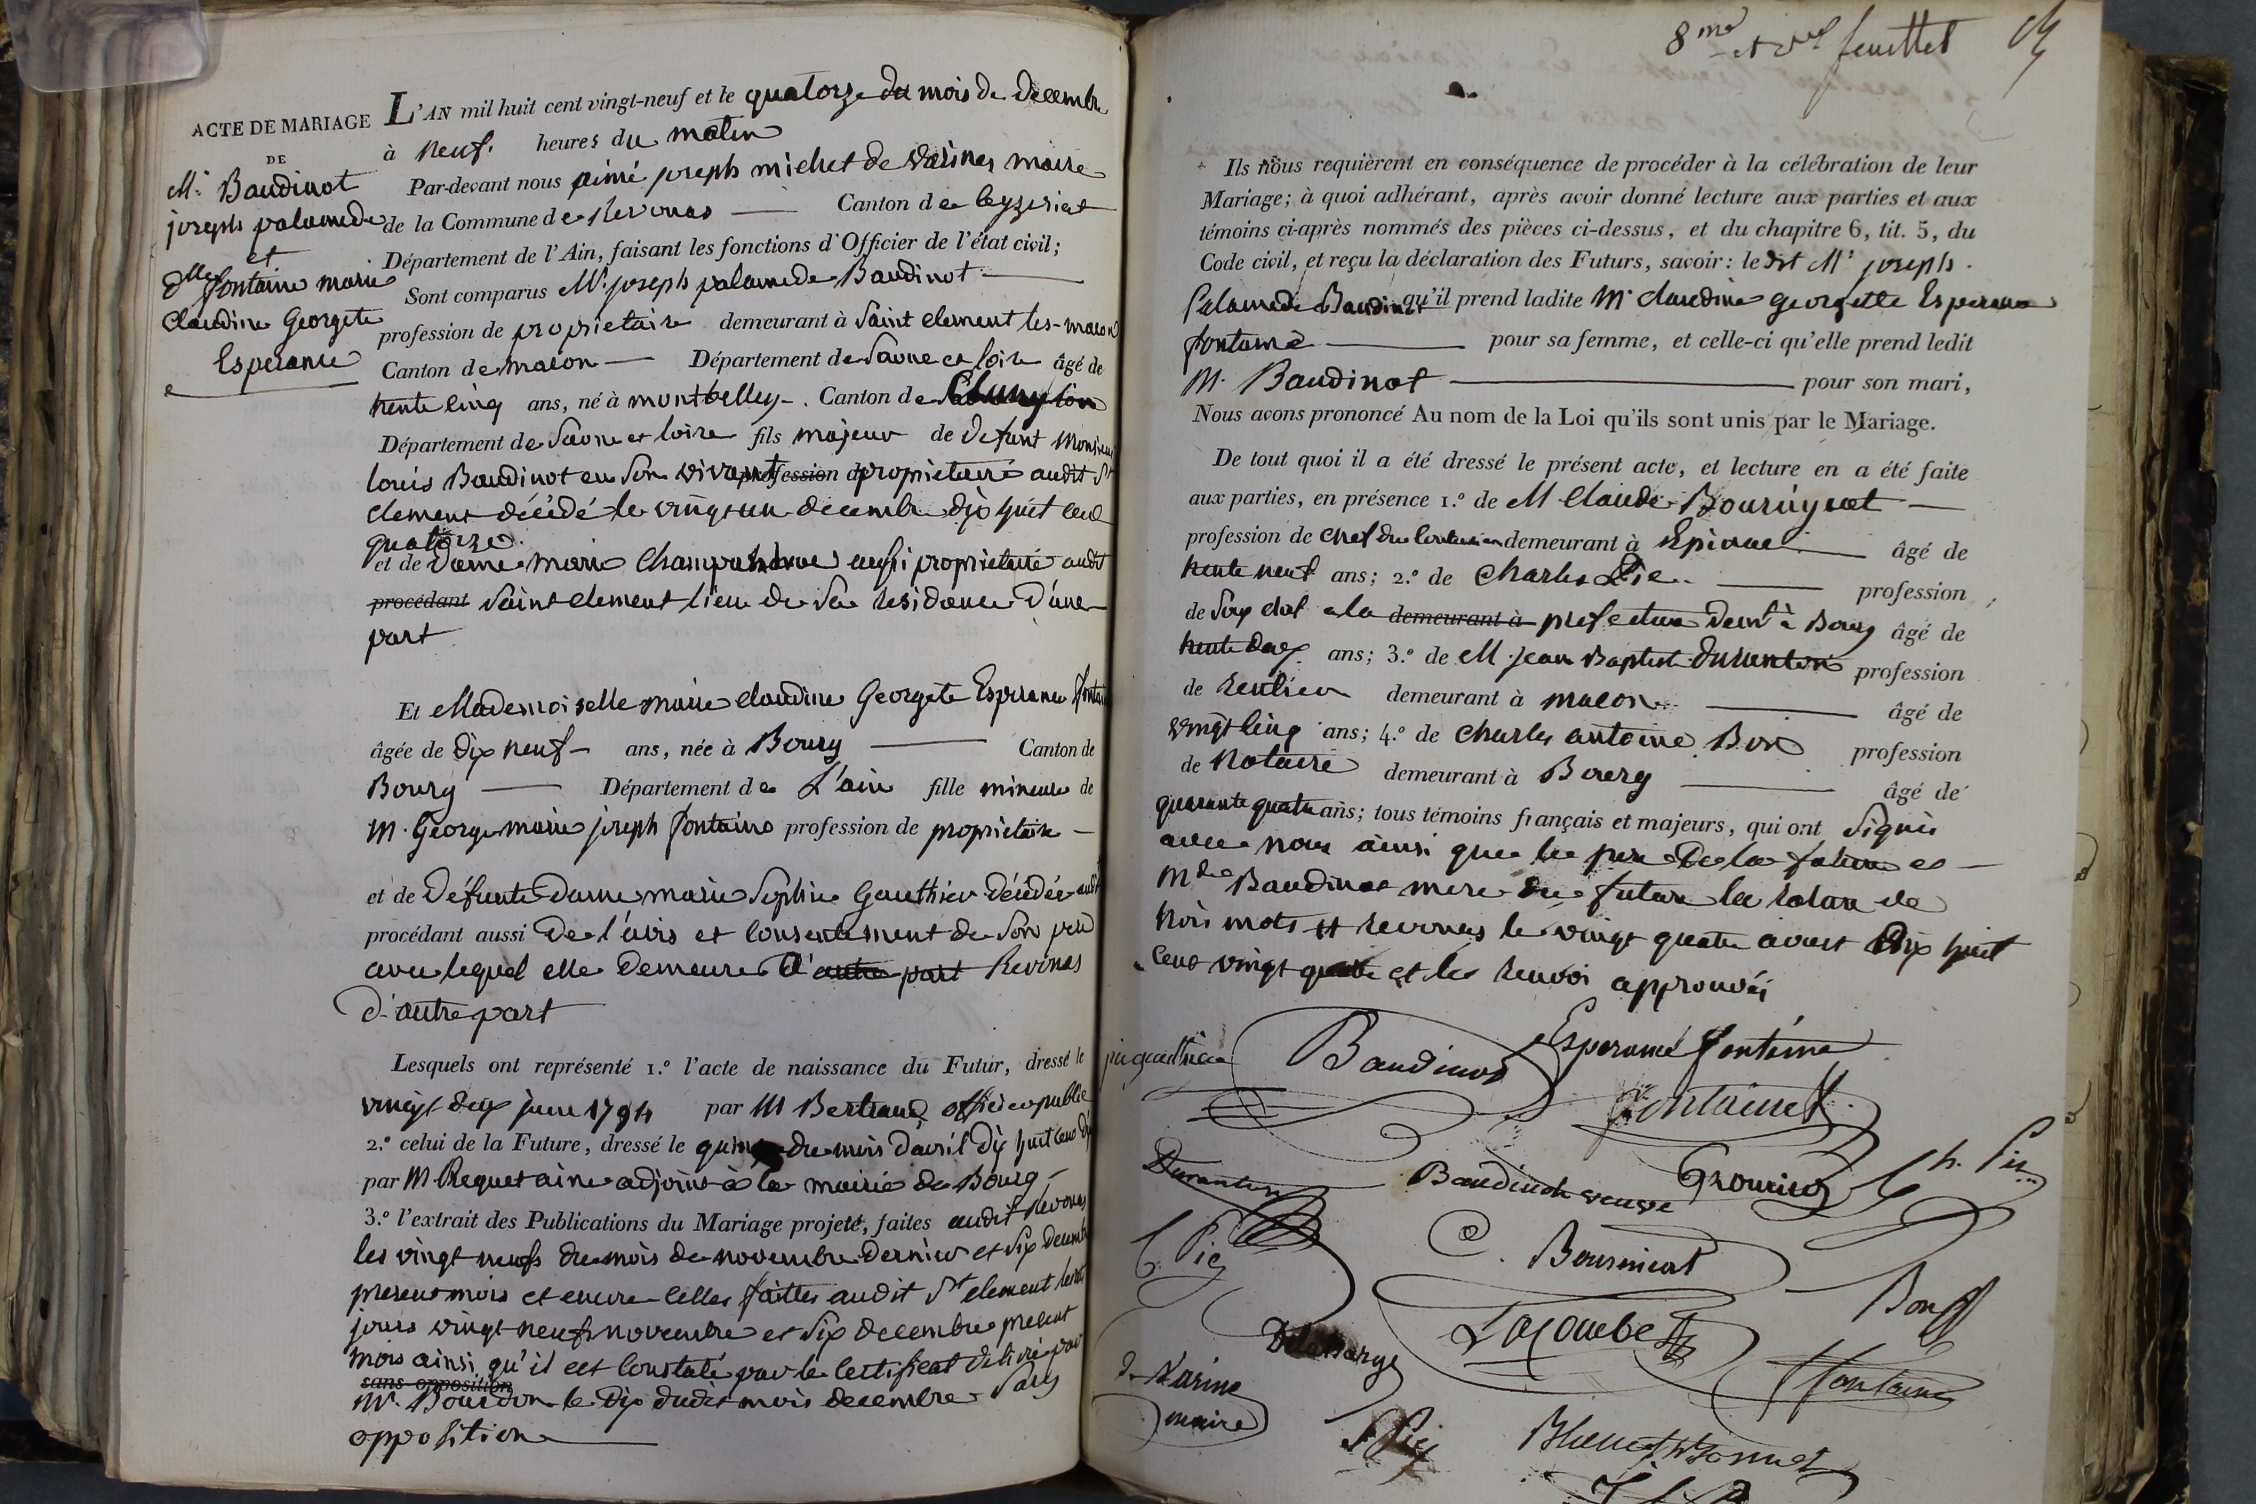 ACTE DE MARIAGE
DE
Mr. Baudinot
joseph palamede
et
Dlle fontaine marie
Claudine Georgete
Esperance
L'AN mil huit cent vingt-neuf et le quatorze du mois de Decembre
à neuf heures du matin
Par-devant nous aimé joseph michet de Varines maire
de la Commune de Revonas Canton de Ceyzeriat
Département de l'Ain, faisant les fonctions d'Officier de l'état civil;
Sont comparus Mr. joseph palamede Baudinot
profession de proprietaire demeurant à Saint Clement les-macon
Canton de macon Département de Saone et loire âgé de
trente cinq ans, né à montbelley Canton de Cluny
Département de Saone et loire fils majeur de Defunt Monsieur
louis Baudinot en son vivant profession de proprietaire audit St
Clement décédé le vingt un decembre dix huit cent
quatorze.
et de Dame marie aussi proprietaire audit
procédant Saint Clement lieu de sa residence D'une
part
Et Mademoiselle marie Claudine Georgete Esperance fontaine
âgée de dix neuf ans, née à Bourg Canton de
Bourg Département de L'ain fille mineure de
M. George marie joseph fontaine profession de proprietaire
et de Défunte Dame marie Sophie Gauthier Décédée audit
procédant aussi De l'avis et consentement de son père
avec lequel elle Demeure D'autre part Revonas
D'autre part
Lesquels ont représenté 1.º l'acte de naissance du Futur, dressé le
vingt deux juin 1794 par M Bertrand officier public
2.º celui de la Future, dressé le quinze du mois d'avril dix huit cent dix
par M Requet aine adjoint à la mairie de Bourg
3.º l'extrait des Publications du Mariage projeté, faites audit Revonas
les vingt neuf du mois de novembre Dernier et six decembre
present mois et encore celles faittes audit St Clement lesdits
jours vingt neuf novembre et six decembre present
mois ainsi qu'il est constaté par le certificat délivré par
sans opposition
Mr. Bourdon le dix dudit mois decembre sans
opposition
8me et feuillet
Ils nous requièrent en conséquence de procéder à la célébration de leur
Mariage; à quoi adhérant, après avoir donné lecture aux parties et aux
témoins ci-après nommés des pièces ci-dessus, et du chapitre 6, tit. 5, du
Code civil, et reçu la déclaration des Futurs, savoir: ledit Mr joseph
Palamede Baudinot qu'il prend ladite Me claudine georgette Esperance
fontaine pour sa femme, et celle-ci qu'elle prend ledit
M. Baudinot pour son mari,
Nous avons prononcé Au nom de la Loi qu'ils sont unis par le Mariage.
De tout quoi il a été dressé le présent acte, et lecture en a été faite
aux parties, en présence 1.º de M Claude
profession de chef du demeurant à âgé de
trente neuf ans; 2.º de Charles Pie profession
de Sous chef a la demeurant à prefecture Demt à Bourg âgé de
trente deux ans; 3.º de M. jean Baptiste Duranton profession
de rentier demeurant à macon âgé de
vingt cinq ans; 4.º de Charles antoine Bon profession
de Notaire demeurant à Bourg âgé de
quarante quatre ans; tous témoins français et majeurs, qui ont signés
avec nous ainsi que le pere De la future et
Mde Baudinot mere du futur la rature de
trois mots et revonas le vingt quatre avril Dix huit
cent vingt quatre et les renvoi approuvés
Baudinot
Esperance fontaine
fontaine
Duranton
Baudinot veuve
Ch. Pie
C. Pie
C.
Bon
Lacombe
Delamarge
fontaine
De Varine
maire